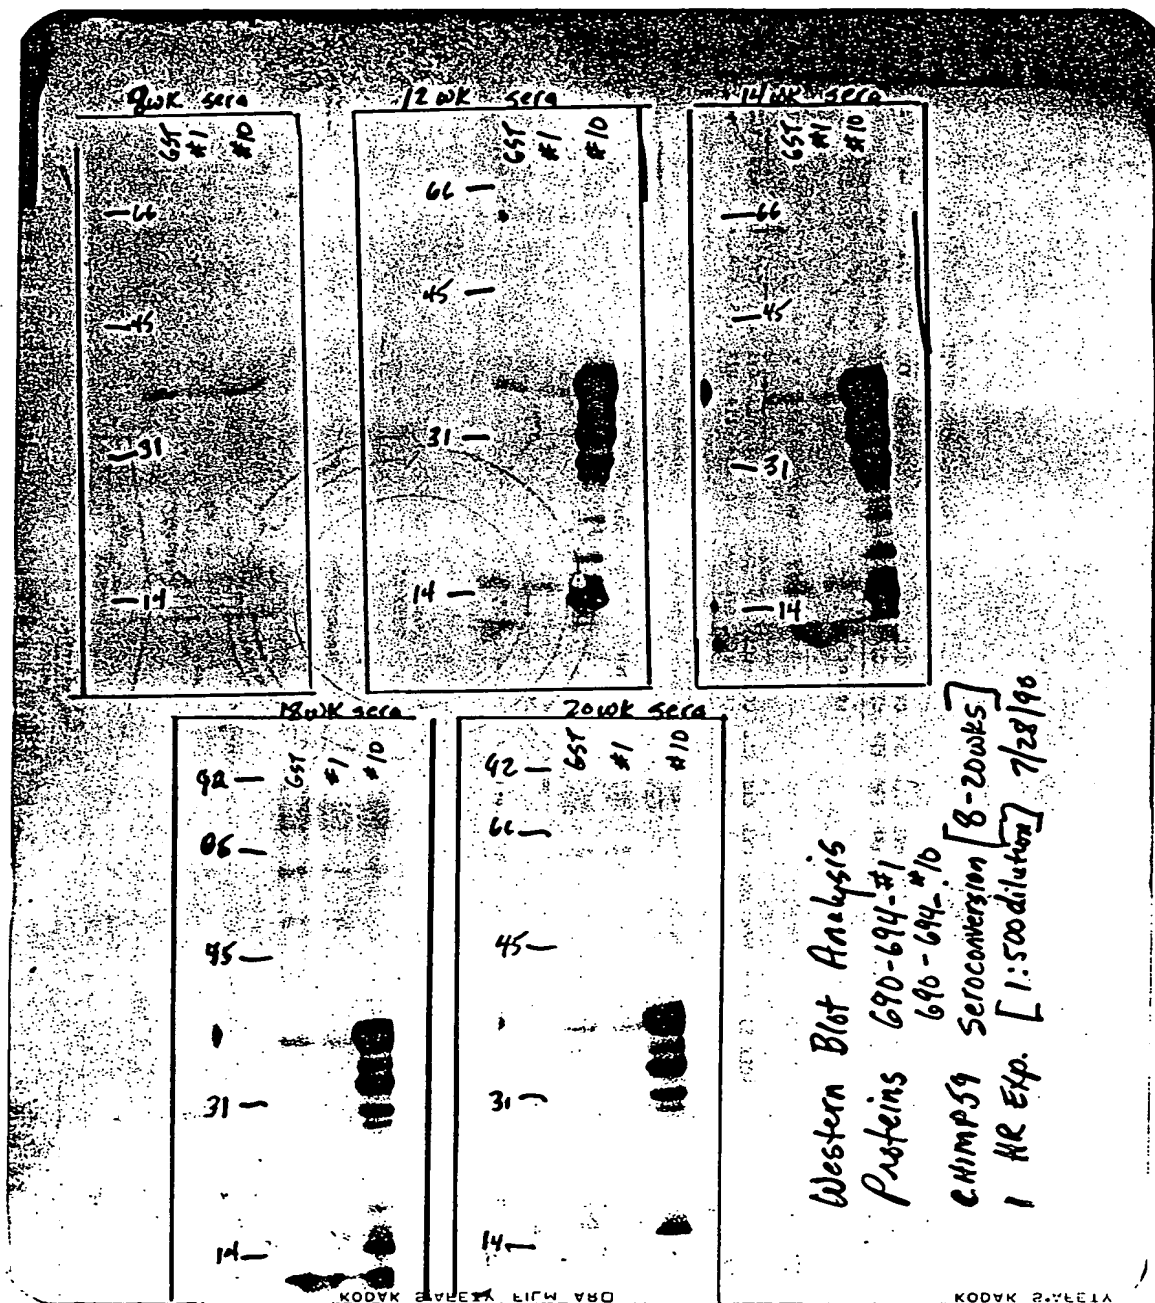 8wk sera
GST
#1
#10
66
45
31
14
12wk sera
GST
#1
#10
66
45
31
14
14wk sera
GST
#1
#10
66
45
31
14
18wk sera
GST
#1
#10
92
66
45
31
14
20wk sera
GST
#1
#10
92
66
45
31
14
Western Blot Analysis
Proteins 690-694-#1
690-694-#10
CHIMP59 Seroconversion [8-20wks]
1 HR Exp. [1:500 dilution] 7/28/98
KODAK SAFETY FILM
KODAK SAFETY